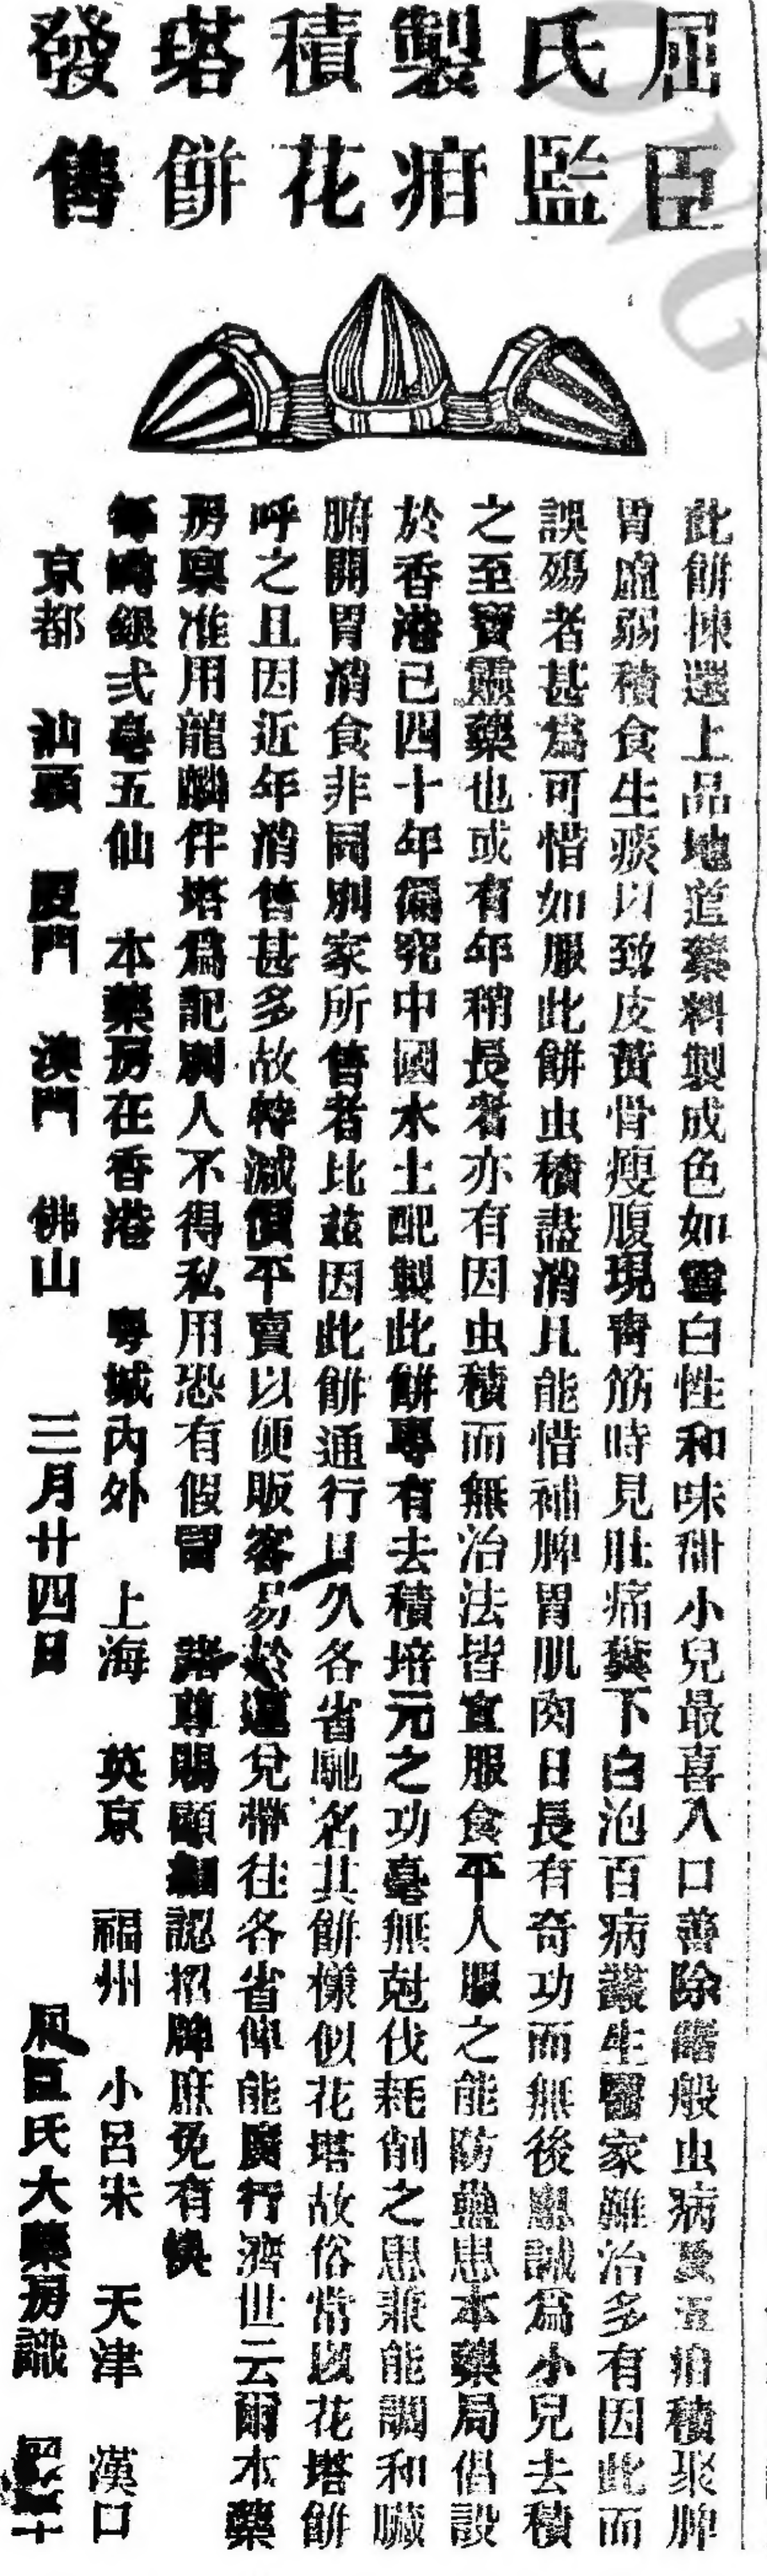 屈臣
氏監
製疳
積花
塔餅
發售
此餅揀選上品地道藥料製成色如雪白性和味甜小兒最喜入口善除諸般虫病及五疳積聚脾
胃虛弱積食生痰以致皮黃骨瘦腹現青筋時見肚痛糞下白泡百病叢生醫家難治多有因此而
誤殤者甚為可惜如服此餅虫積盡消且能惜補脾胃肌肉日長有奇功而無後患誠為小兒去積
之至寶靈藥也或有年稍長者亦有因虫積而無治法皆宜服食平人服之能防蠱患本藥局倡設
於香港已四十年徧究中國水土配製此餅專有去積培元之功毫無尅伐耗削之患兼能調和臟
腑開胃消食非同別家所售者比茲因此餅通行日久各省馳名其餅樣似花塔故俗常以花塔餅
呼之且因近年消售甚多故特減價平賣以便販客易於運兌帶往各省俾能廣行濟世云爾本藥
房稟准用龍麟伴塔為記別人不得私用恐有假冒 諸尊賜顧細認招牌庶免有悞
每罇銀弍毫五仙 本藥房在香港 粵城內外 上海 英京 福州 小呂宋 天津 漢口
京都 汕頭 廈門 澳門 佛山 三月廿四日 屈臣氏大藥房識